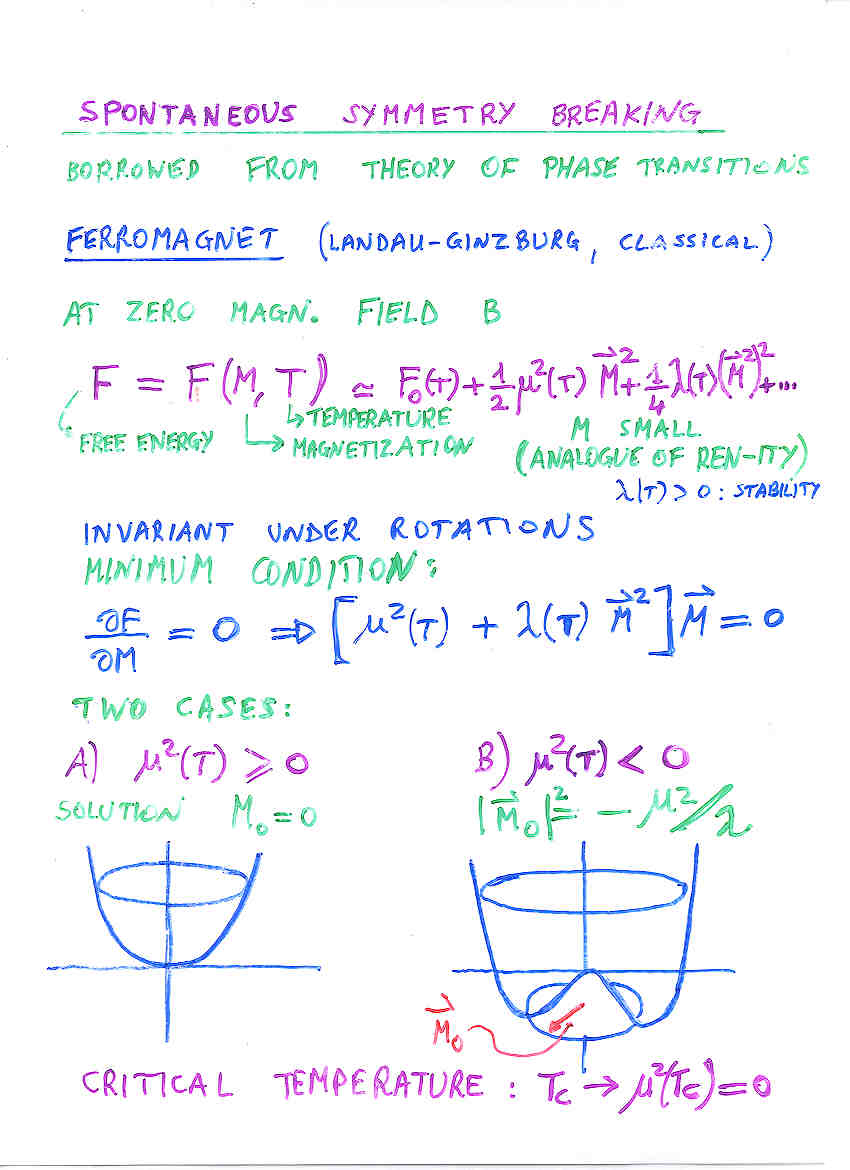 SPONTANEOUS SYMMETRY BREAKING
BORROWED FROM THEORY OF PHASE TRANSITIONS
FERROMAGNET (LANDAU-GINZBURG, CLASSICAL)
AT ZERO MAGN. FIELD B
F = F(M, T) ≃ F₀(T) + 1/2 μ²(T) M⃗² + 1/4 λ(T)(M⃗²)² + ...
FREE ENERGY
↳ TEMPERATURE
↳ MAGNETIZATION
M SMALL
(ANALOGUE OF REN-ITY)
λ(T) > 0 : STABILITY
INVARIANT UNDER ROTATIONS
MINIMUM CONDITION:
∂F/∂M = 0 ⇒ [μ²(T) + λ(T) M⃗²] M⃗ = 0
TWO CASES:
A) μ²(T) ⩾ 0
SOLUTION M₀ = 0
B) μ²(T) < 0
|M⃗₀|² = - μ²/λ
M⃗₀
CRITICAL TEMPERATURE : T_C → μ²(T_C) = 0